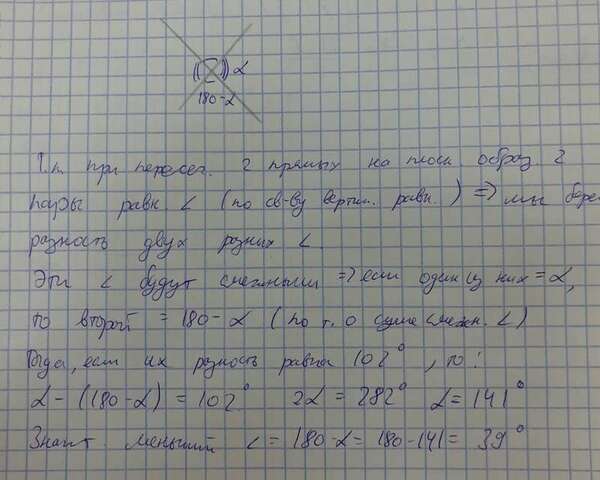 α
180-α
Т.к. при пересеч. 2 прямых на плоск. образ 2
пары равн ∠ (по св-ву вертик. равн.) => мы бере
разность двух разных ∠
Эти ∠ будут смежными => если один из них = α,
то второй = 180-α (по т. о сумме смежн. ∠)
Тогда, если их разность равна 102°, то:
α-(180-α) = 102° 2α = 282° α = 141°
Значит меньший ∠ = 180-α = 180-141 = 39°